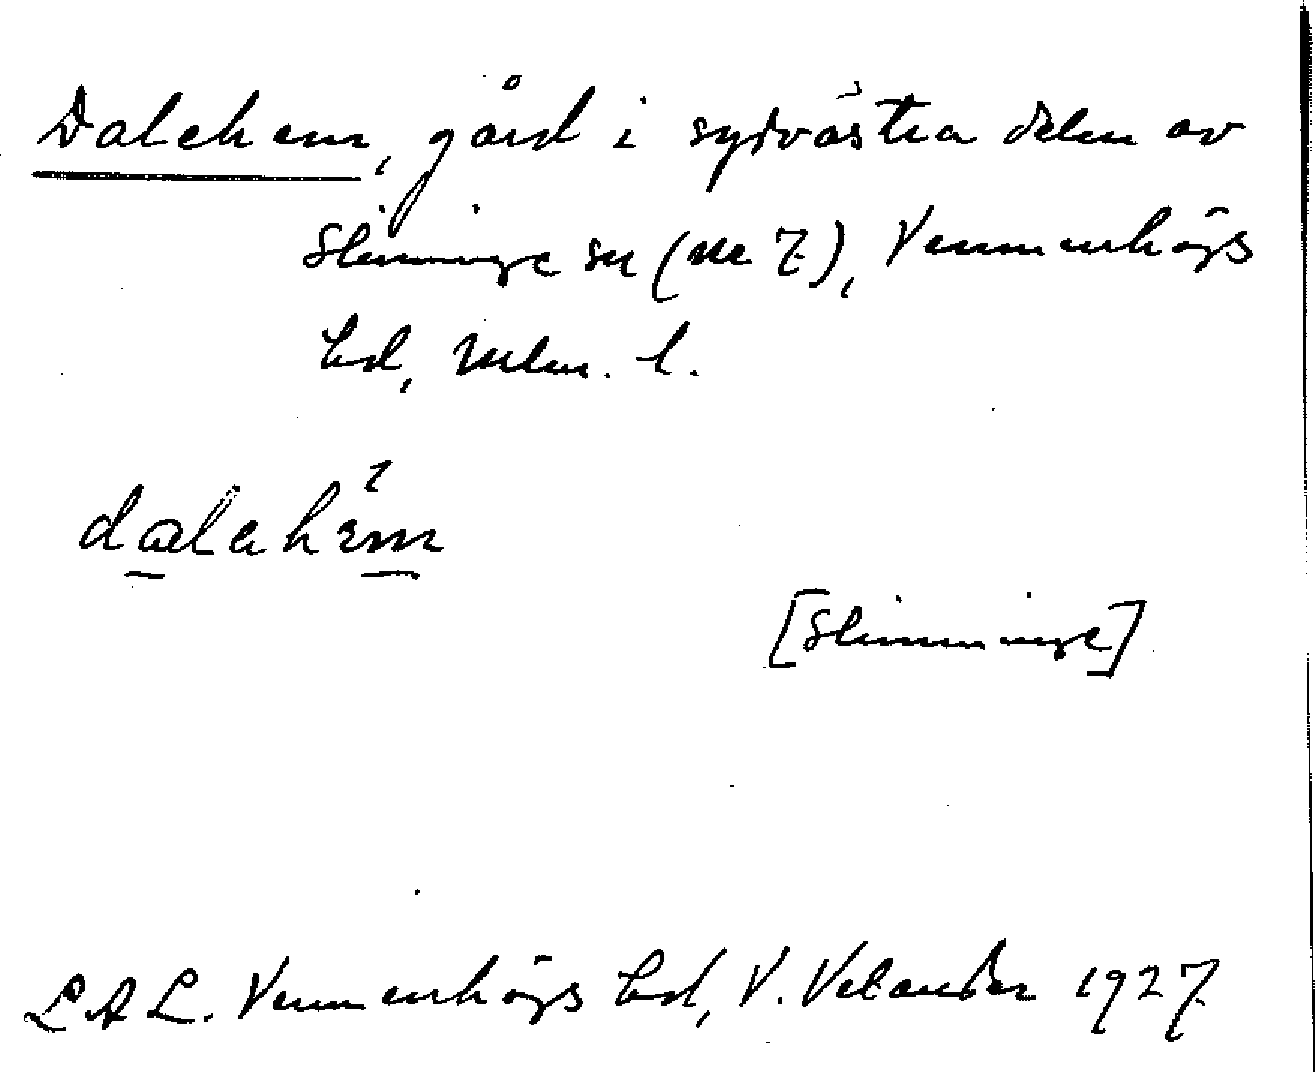 Dalehem, gård i sydvästra delen av
Slimminge sn (nr 7), Vemmenhögs
hd, Mlm. l.
dalahem
[Slimminge]
LAL. Vemmenhögs hd, V. Velander 1927